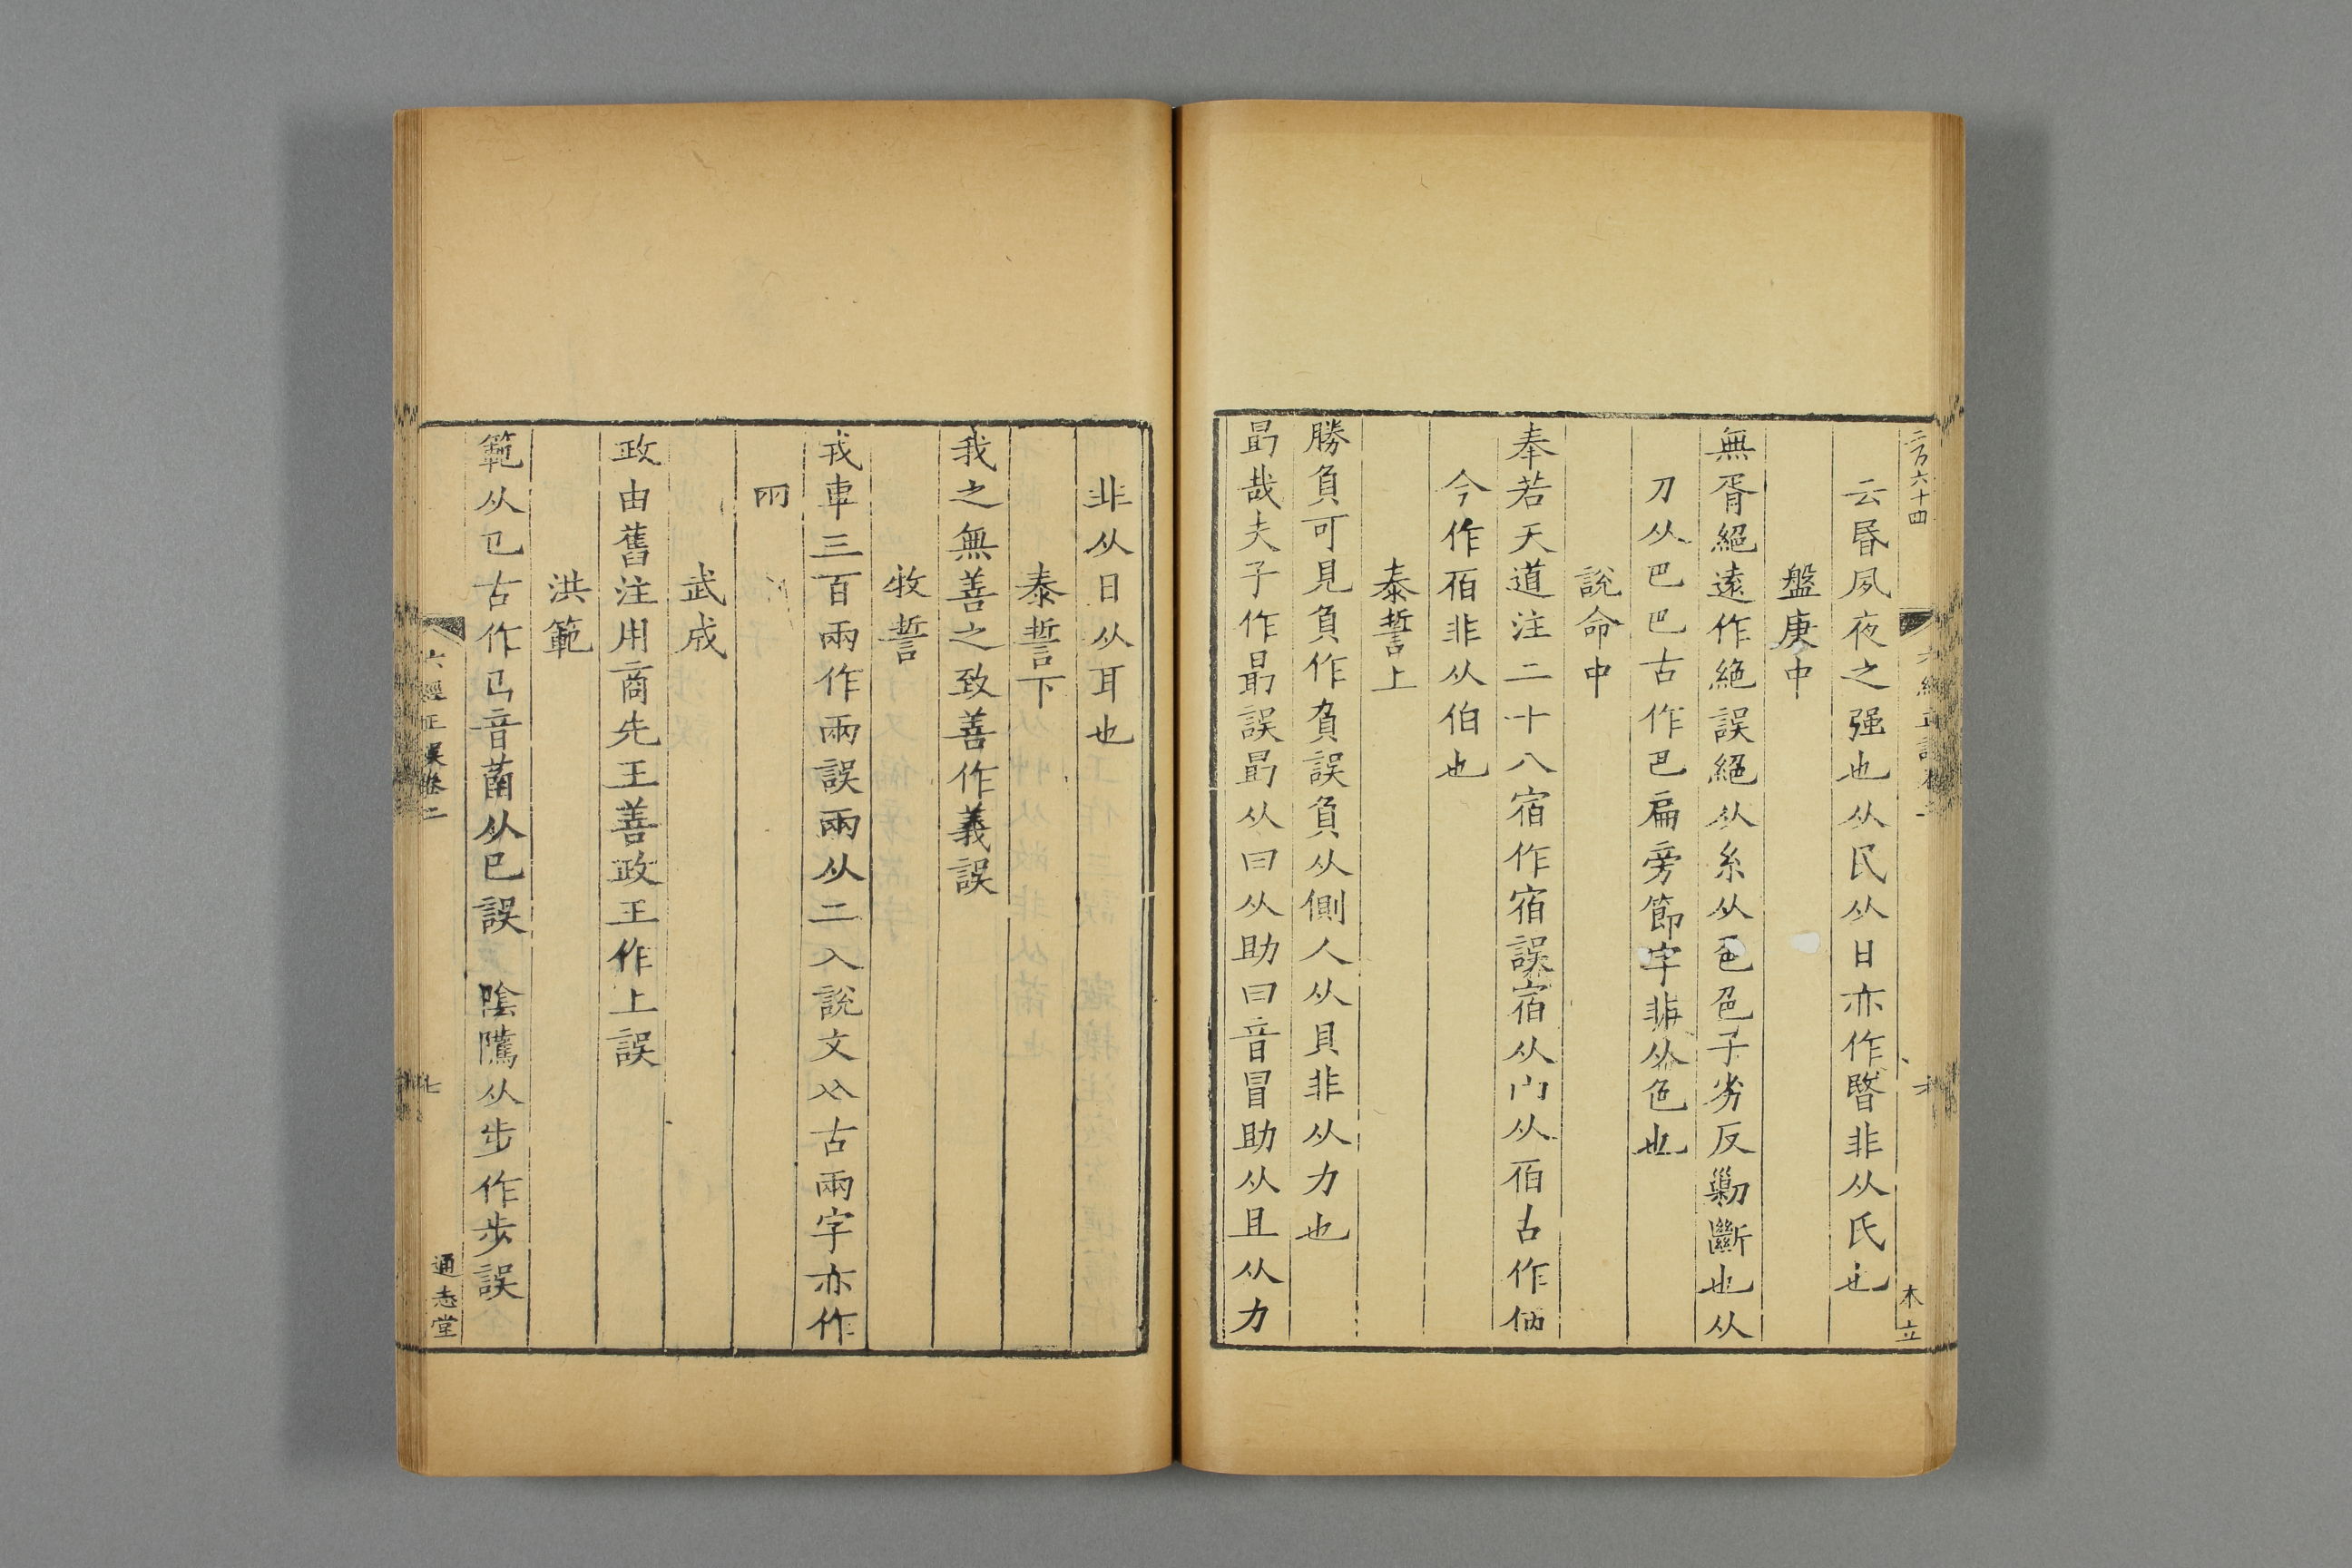 云昬夙夜之强也从民从日亦作暋非从氏也
盤庚中
無胥絕遠作絶誤絕从糸从色色子劣反剿斷也从
刀从巴巴古作㔾扁旁節字非从色也
說命中
奉若天道注二十八宿作宿誤宿从宀从佰古作㐁
今作佰非从伯也
泰誓上
勝負可見負作負誤負从側人从貝非从力也
勖哉夫子作最誤勖从曰从助曰音冒助从且从力
非从日从耳也
泰誓下
我之無善之致善作義誤
牧誓
戎車三百兩作兩誤兩从二入說文从古兩字亦作
㒳
武成
政由舊注用商先王善政王作上誤
洪範
範从㔾古作㔾音菌从巳誤 陰隲从步作歩誤
六經正誤卷二
七
通志堂